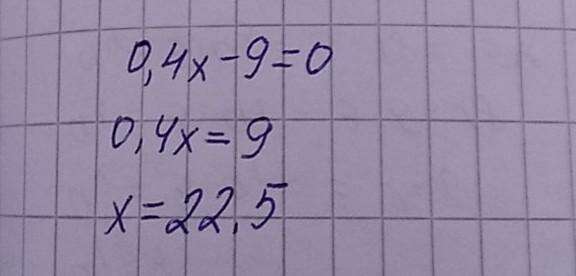 0,4x-9=0
0,4x=9
x=22.5